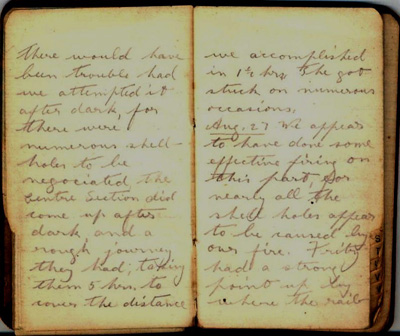 there would have
been trouble had
we attempted it
after dark, for
there were
numerous shell-
holes to be
negociated, the
Centre Section did
come up after
dark and a
rough journey
they had, taking
them 5 hrs. to
cover the distance
we accomplished
in 1½ hrs, & he got
stuck on numerous
occasions.
Aug. 27 We appear
to have done some
effective firing on
this part, for
nearly all the
shell holes appear
to be caused by
our fire. Fritz
had a strong
point up by
where the rail